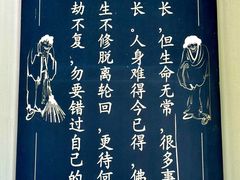 长,但生命无常,很多事
长。人身难得今已得,佛
生不修脱离轮回,更待何
劫不复,勿要错过自己的